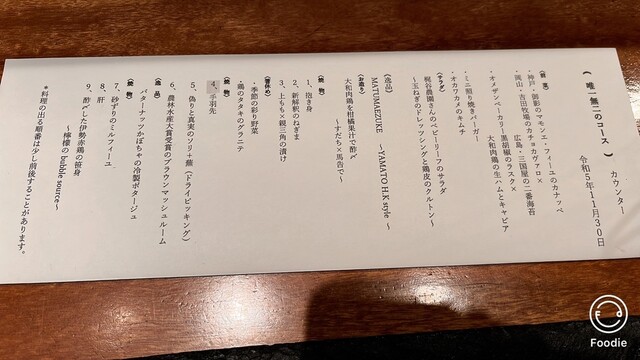 カウンター
(唯一無二のコース)
令和5年11月30日
(前菜)
・神戸・御影のマモンエ・フィーユのカナッペ
・岡山・吉田牧場のカチョカヴァロ×
広島・三国屋の二番海苔
・オメザンベーカリー黒胡椒のラスク×
大和肉鶏の生ハムとキャビア
・ミニ照り焼きバーガー
・オカワカメのキムチ
(サラダ)
梶谷農園さんのベビーリーフのサラダ
～玉ねぎのドレッシングと鶏皮のクルトン～
(逸品)
MATUMAEZUKE ～YAMATO H.K style～
(お造り)
大和肉鶏を柑橘果汁で酢〆
～すだち×馬告で～
(焼物)
1、抱き身
2、新解釈のねぎま
3、上もも×親三角の漬け
(箸休め)
・季節の彩り野菜
・鶏のタタキのグラニテ
(焼物)
4、手羽先
5、偽りと真実のソリ+蕪(ドライピッキング)
6、農林水産大賞受賞のブラウンマッシュルーム
(逸品)
バターナッツかぼちゃの冷製ポタージュ
(焼物)
7、砂ずりのミルフィーユ
8、肝
9、酢〆した伊勢赤鶏の笹身
～檸檬の bubble source～
*料理の出る順番は少し前後することがあります。
Foodie